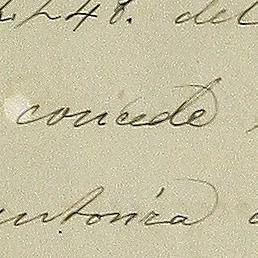 248. del
concede
antonira